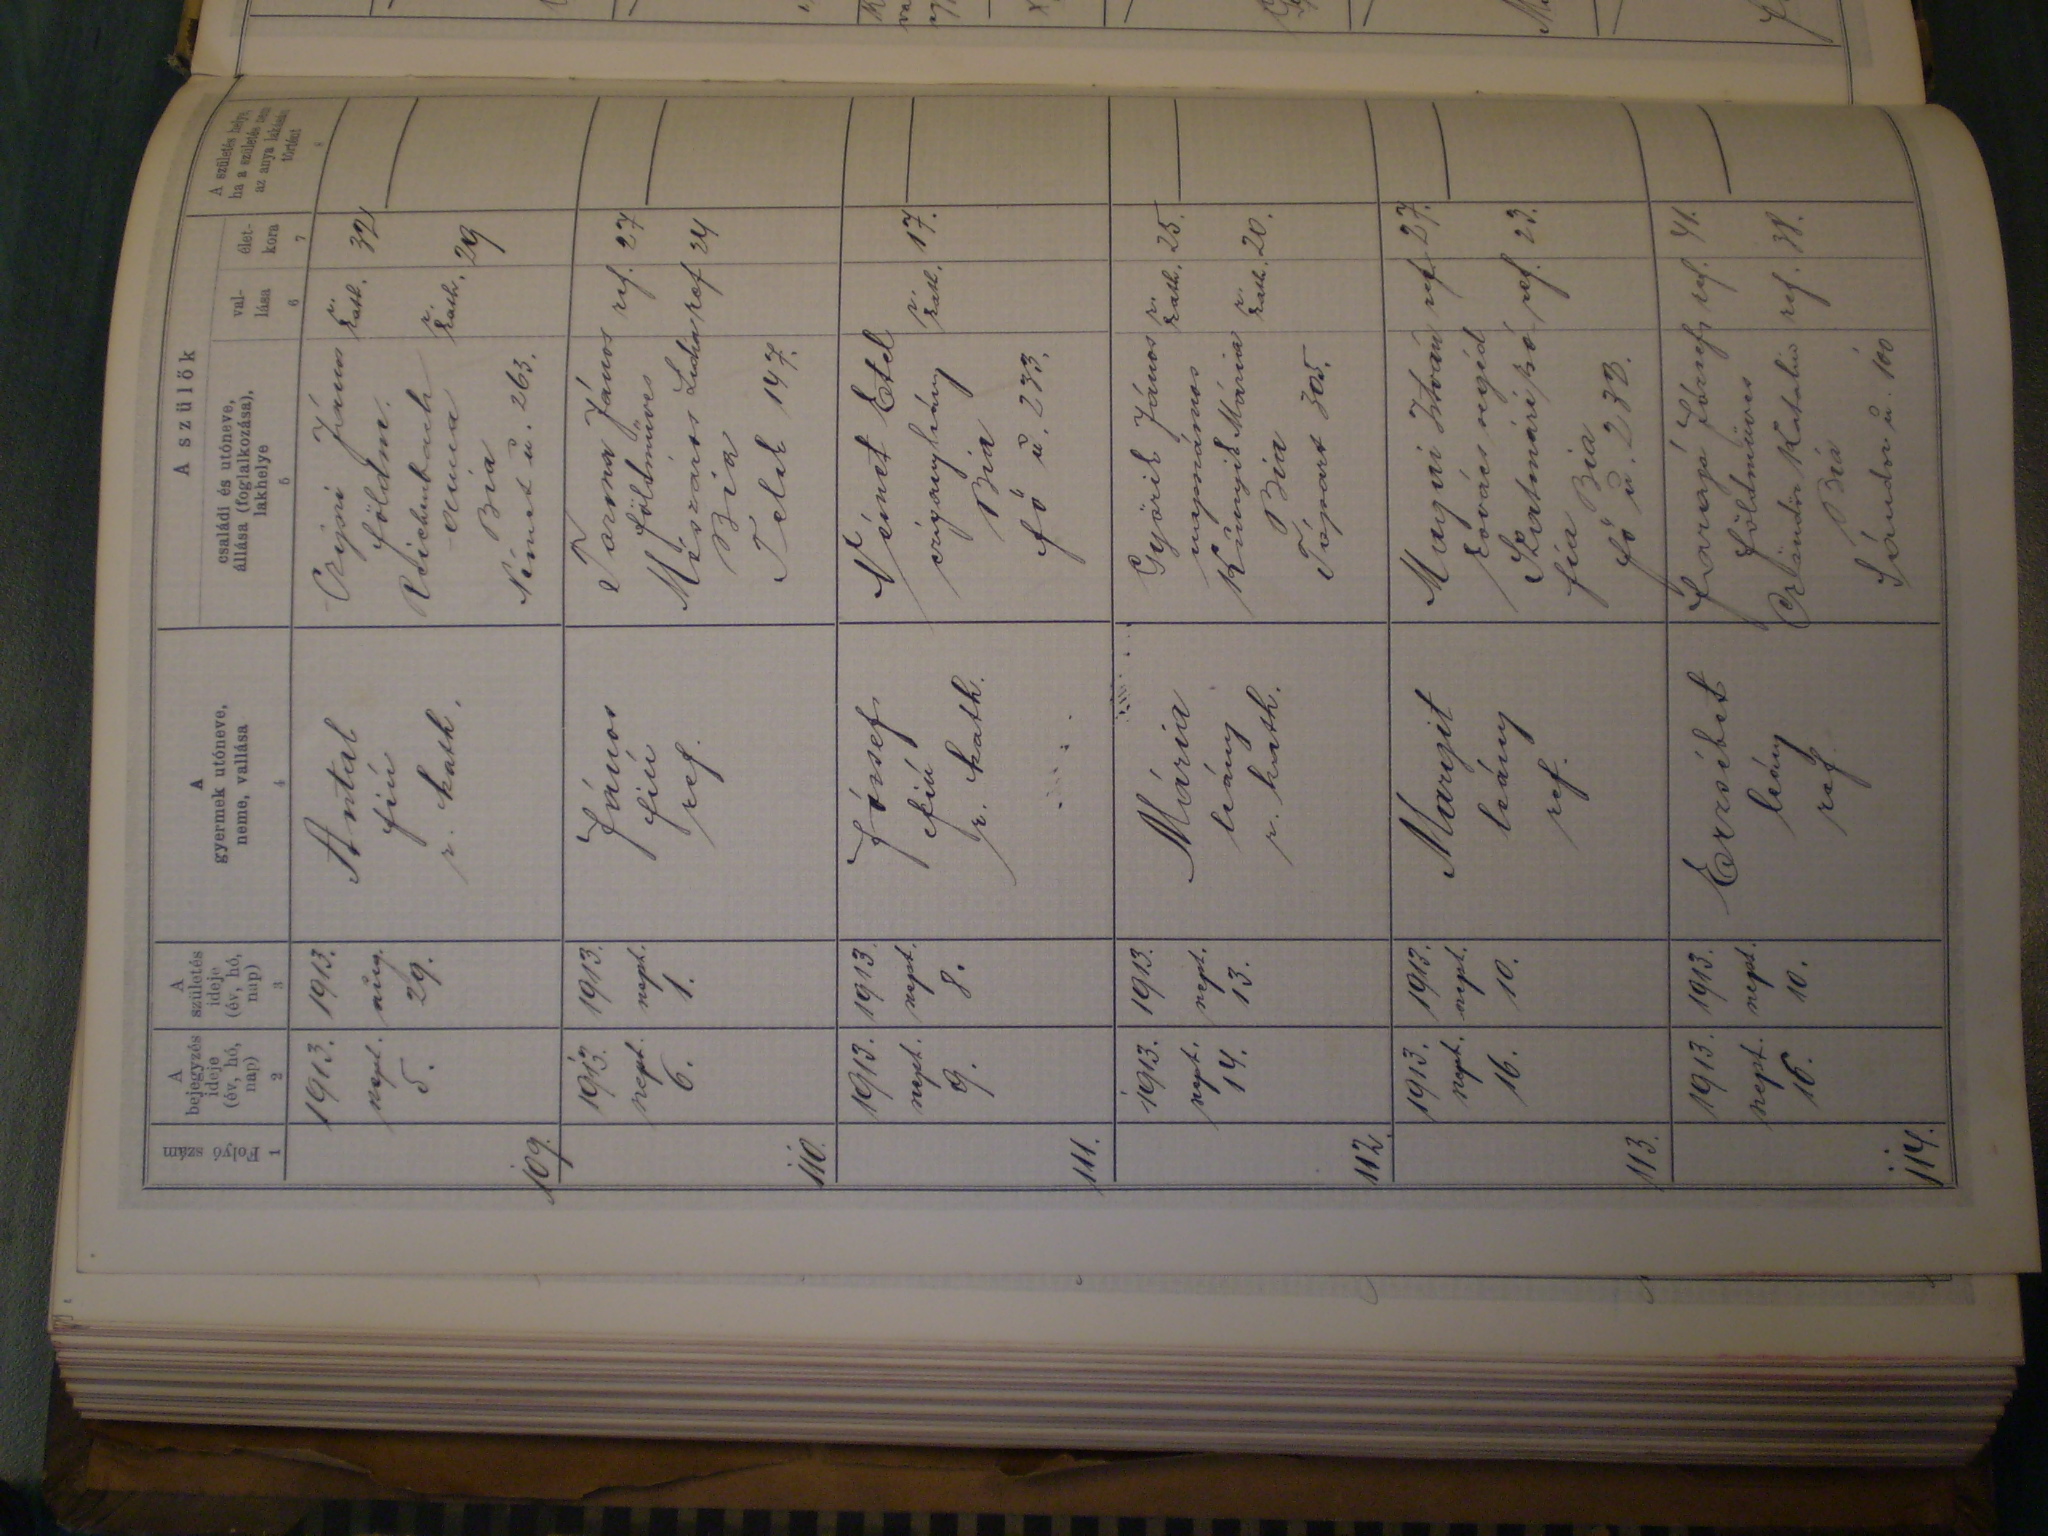 Folyó szám
A bejegyzés ideje (év, hó, nap)
A születés ideje (év, hó, nap)
A gyermek utóneve, neme, vallása
A szülők
családi és utóneve, állása (foglalkozása), lakhelye
val-lása
élet-kora
A születés helye, ha a születés nem az anya lakásán történt
1 2 3 4 5 6 7 8
109.
1913. sept. 5.
1913. aug. 29.
Antal
fiú
r. kath.
János r. kath. 32
földm.
Reichenbach
Anna r. kath. 29
Bia
Német u. 263.
110.
1913. sept. 6.
1913. sept. 1.
János
fiú
ref.
János ref. 27
földműves
Mészáros ref 24
Bia
Telek 147.
111.
1913. sept. 9.
1913. sept. 8.
József
fiú
r. kath.
Német Etel r. kath. 17.
czigányleány
Bia
Fő u. 273.
112.
1913. sept. 14.
1913. sept. 13.
Mária
leány
r. kath.
János r. kath. 25.
napszámos
Mária r. kath. 20.
Bia
Tópart 305.
113.
1913. sept. 16.
1913. sept. 10.
Margit
leány
ref.
István ref 27.
kovács segéd
ref. 23.
Bia
Fő u. 233.
114.
1913. sept. 16.
1913. sept. 10.
Erzsébet
leány
ref
József ref. 41.
földműves
Katalin ref. 38.
Bia
Sándor u. 100